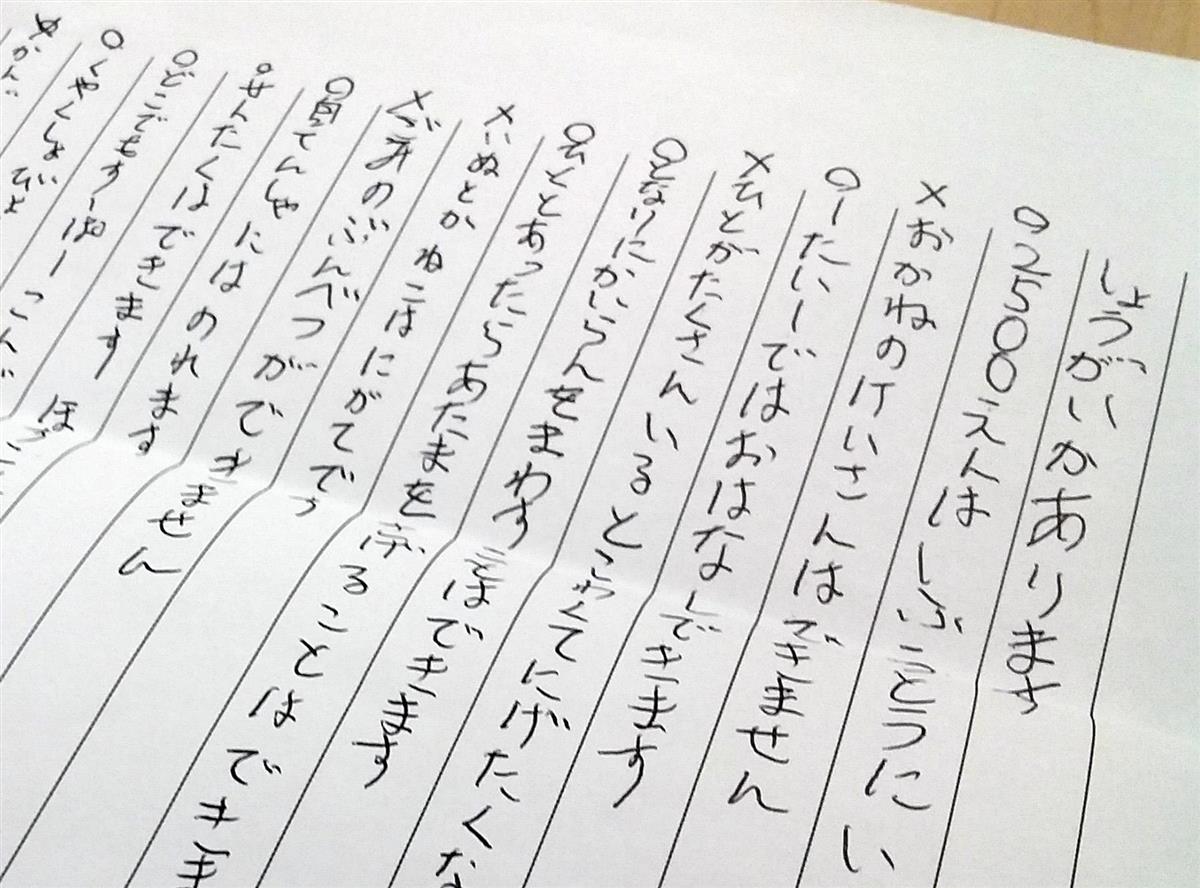 しょうがいかあります
○2500えんはしぶことうにい
×おかねのけいさんはできません
○1たい1ではおはなしできます
×ひとがたくさんいるとこわくてにげたくな
○となりにかいらんをまわすことはできます
○ひととあったらあたまをふることはでき
×いぬとかねこはにがてです
×ごみのぶんべつができません
○自てんしゃにはのれます
○せんたくはできます
○どこでもすーぱー
○くやくしょ